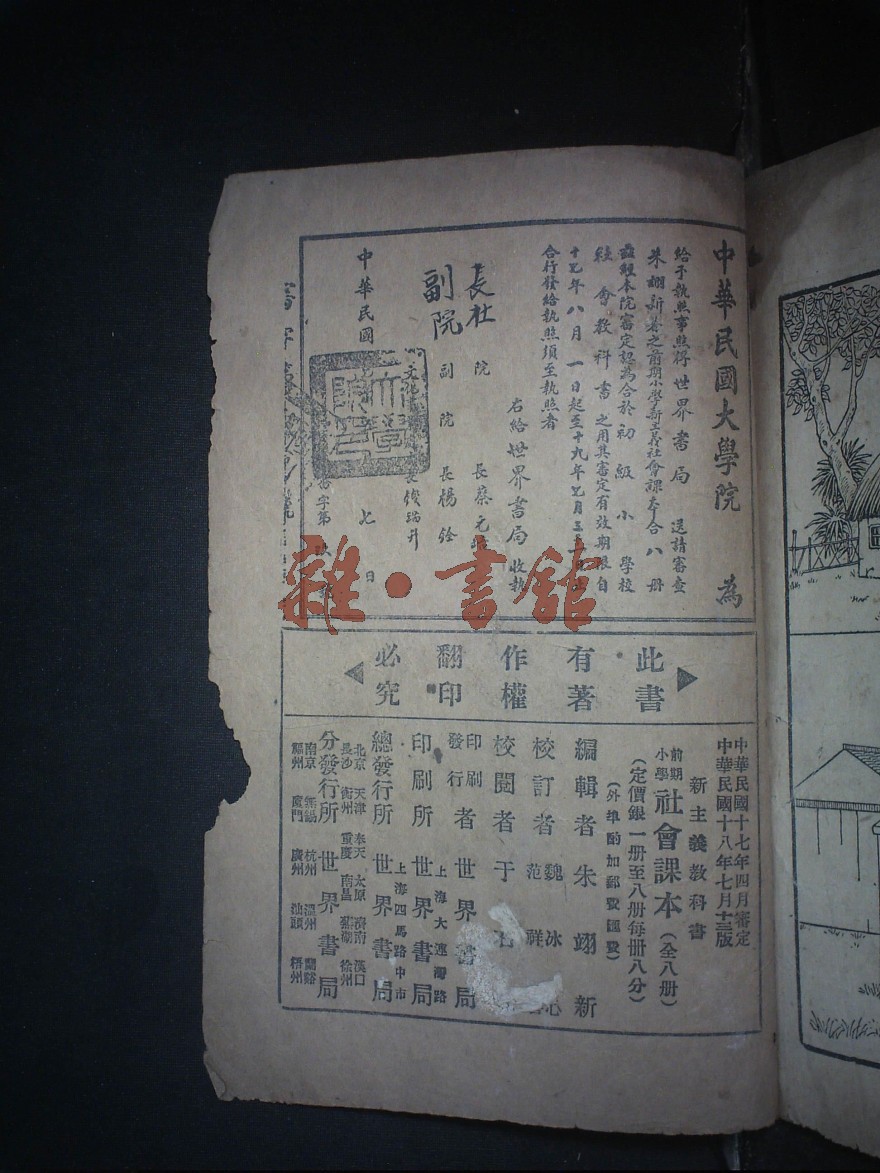 中華民國大學院 為
給予執照事照得世界書局 送請審查
朱翊新著之前期小學新主義社會課本合八冊
業經本院審定認為合於初級小 學校
社會教科書之用其審定有效期限自
十七年八月一日起至十九年七月三十
合行發給執照須至執照者
右給世界書局收執
院 長蔡元培
副院長楊銓
中華民國 七 日
字第 號
雜·書館
此書有著作權翻印必究
中華民國十七年四月審定
中華民國十八年七月十三版
新主義教科書
前期小學 社會課本 (全八冊)
(定價銀一冊至八冊每冊八分)
(外埠酌加郵費匯費)
編輯者 朱翊新
校訂者 魏冰心 范祥
校閱者 于
印刷發行者 世界書局
印刷所 上海大連灣路 世界書局
總發行所 上海四馬路中市 世界書局
北京 天津 奉天 太原 濟南 漢口
長沙 衡州 重慶 南昌 蕪湖 徐州
分發行所 世界書局
南京 無錫 杭州 溫州 蘭谿
廈門 廣州 汕頭 梧州